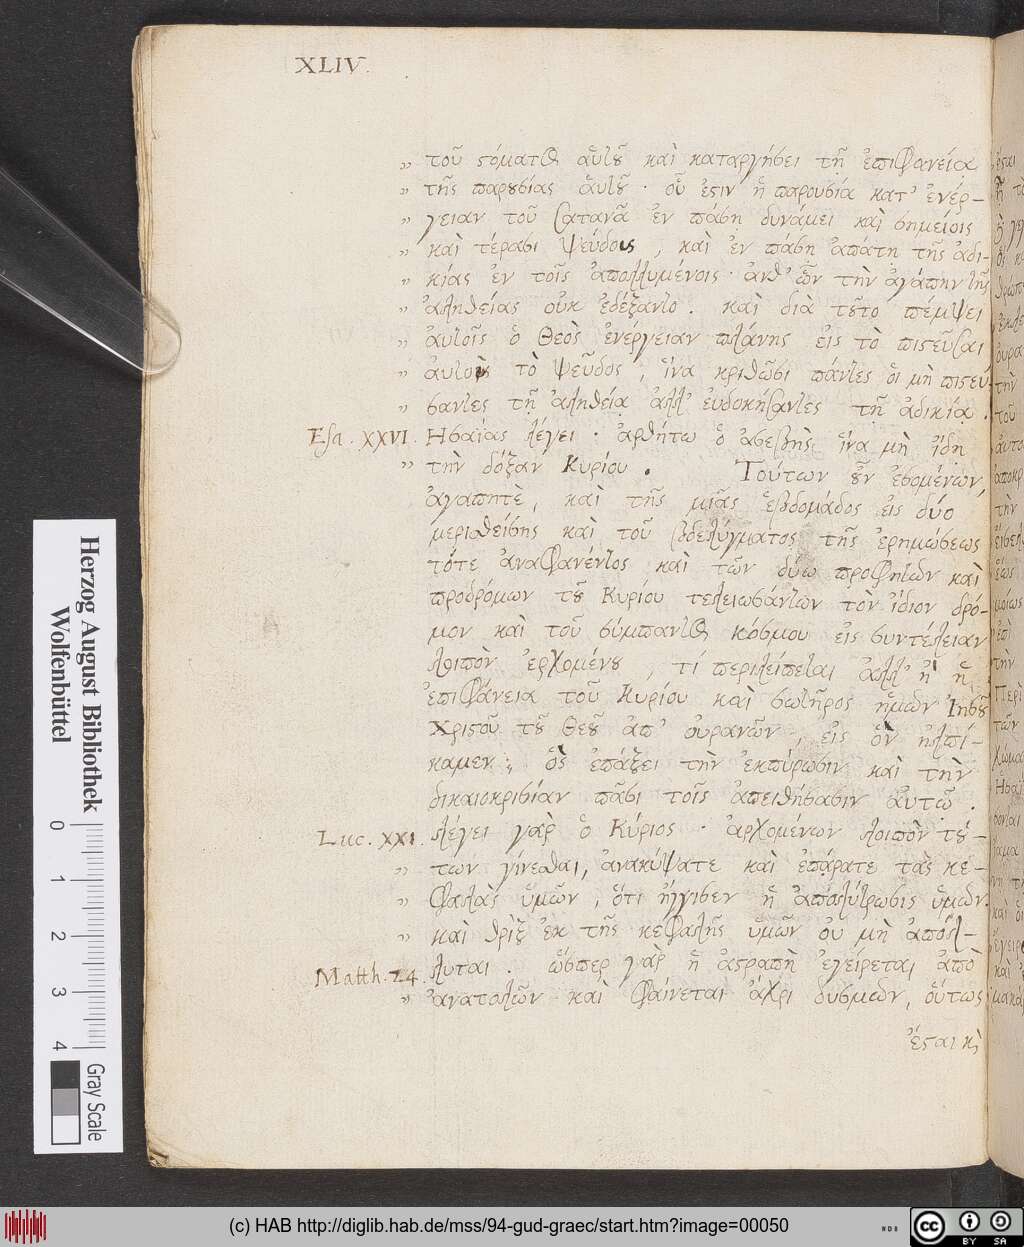 XLIV.
„ τοῦ στόματος ἀυτοῦ καὶ καταργήσει τῇ ἐπιφανείᾳ
„ τῆς παρουσίας ἀυτοῦ · οὗ ἐστιν ἡ παρουσία κατ' ἐνέρ-
„ γειαν τοῦ Σατανᾶ ἐν πάσῃ δυνάμει καὶ σημείοις
„ καὶ τέρασι ψεύδους, καὶ ἐν πάσῃ ἀπάτῃ τῆς ἀδι-
„ κίας ἐν τοῖς ἀπολλυμένοις · ἀνθ' ὧν τὴν ἀγάπην τῆς
„ ἀληθείας οὐκ ἐδέξαντο. καὶ διὰ τοῦτο πέμψει
„ ἀυτοῖς ὁ Θεὸς ἐνέργειαν πλάνης εἰς τὸ πιστεῦσαι
„ ἀυτοὺς τὸ ψεῦδος, ἵνα κριθῶσι πάντες ὁι μὴ πιστεύ-
„ σαντες τῇ ἀληθείᾳ ἀλλ' ἐυδοκήσαντες τῇ ἀδικίᾳ.
Esa. XXVI. Ησαΐας λέγει · ἀρθήτω ὁ ἀσεβὴς ἵνα μὴ ἴδῃ
„ τὴν δόξαν Κυρίου. Τούτων οὖν ἐσομένων,
ἀγαπητὲ, καὶ τῆς μιᾶς ἑβδομάδος εἰς δύο
μερισθείσης καὶ τοῦ βδελύγματος τῆς ἐρημώσεως
τότε ἀναφανέντος καὶ τῶν δύω προφητῶν καὶ
προδρόμων τοῦ Κυρίου τελειωσάντων τὸν ἴδιον δρό-
μον καὶ τοῦ σύμπαντος κόσμου εἰς συντέλειαν
λοιπὸν ἐρχομένου, τί περιλείπεται ἀλλ' ἢ ἡ
ἐπιφάνεια τοῦ Κυρίου καὶ σωτῆρος ἡμῶν Ἰησοῦ
Χριστοῦ τοῦ Θεοῦ ἀπ' ὀυρανῶν, εἰς ὃν ἠλπί-
καμεν; ὃς ἐπάξει τὴν ἐκπύρωσιν καὶ τὴν
δικαιοκρισίαν πᾶσι τοῖς ἀπειθήσασιν ἀυτῷ.
Luc. XXI. λέγει γὰρ ὁ Κύριος · ἀρχομένων λοιπὸν τού-
„ των γίνεσθαι, ἀνακύψατε καὶ ἐπάρατε τὰς κε-
„ φαλὰς ὑμῶν, ὅτι ἤγγισεν ἡ ἀπολύτρωσις ὑμῶν.
„ καὶ θρὶξ ἐκ τῆς κεφαλῆς ὑμῶν ὀυ μὴ ἀπόλ-
Matth. 24. λυται. ὥσπερ γὰρ ἡ ἀστραπὴ ἐγείρεται ἀπὸ
„ ἀνατολῶν καὶ φαίνεται ἄχρι δυσμῶν, οὕτως
ἔσται κὶ
Herzog August Bibliothek
Wolfenbüttel
0 1 2 3 4
Gray Scale
(c) HAB http://diglib.hab.de/mss/94-gud-graec/start.htm?image=00050
WDB
cc BY SA